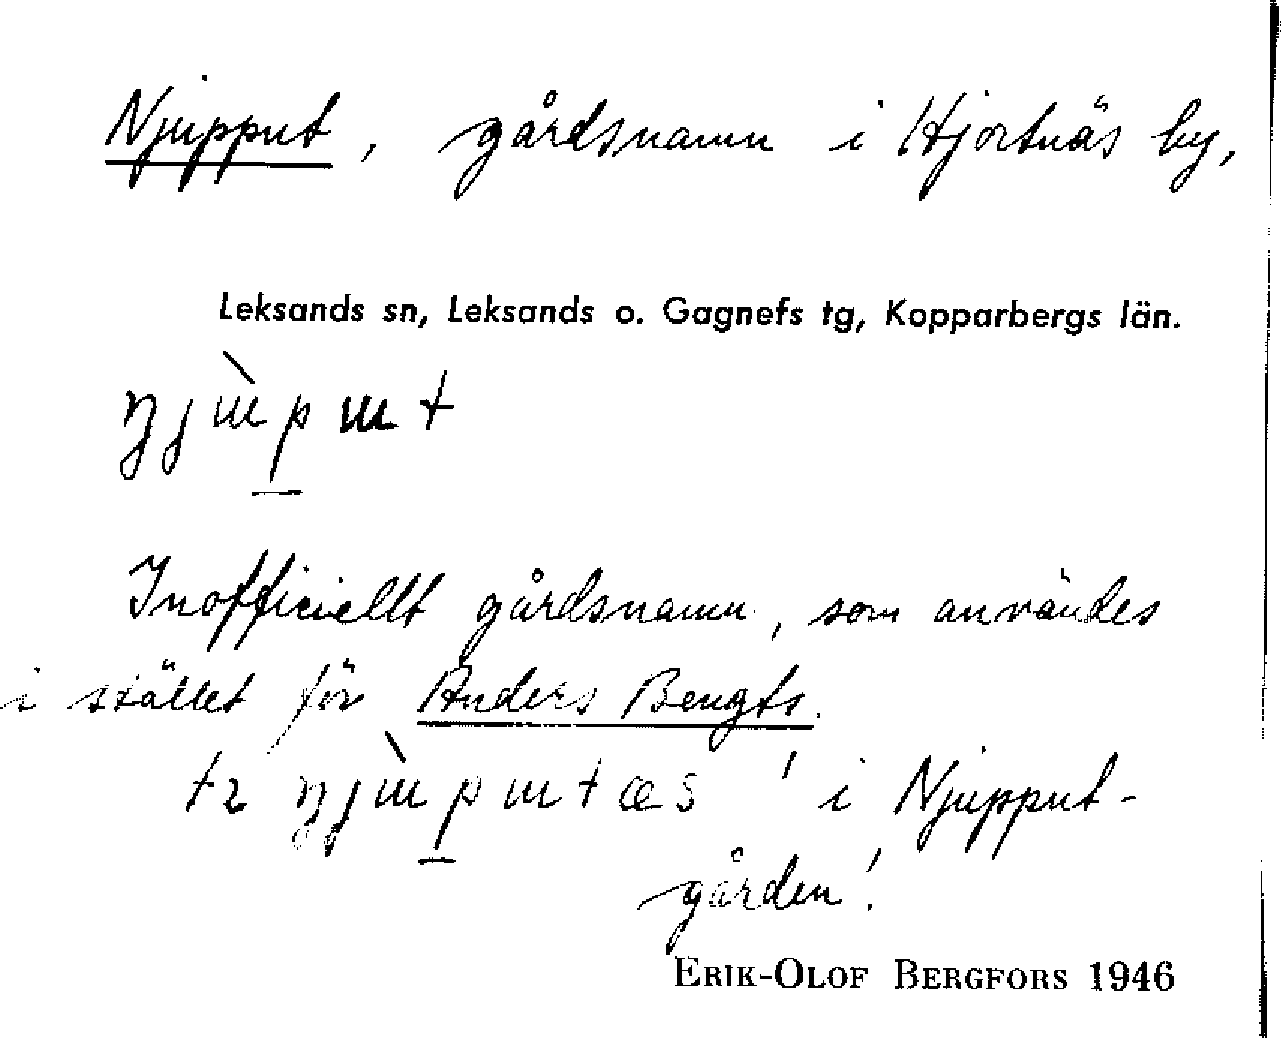 Njupput, gårdsnamn i Hjortnäs by,
Leksands sn, Leksands o. Gagnefs tg, Kopparbergs län.
Inofficiellt gårdsnamn, som användes
i stället för Anders Bengts.
' i Njupput-
gården'.
ERIK-OLOF BERGFORS 1946